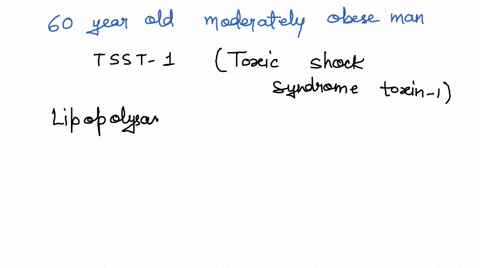 60 year old moderately obese man
TSST-1 (Toxic shock
syndrome toxin-1)
Lipopolysa